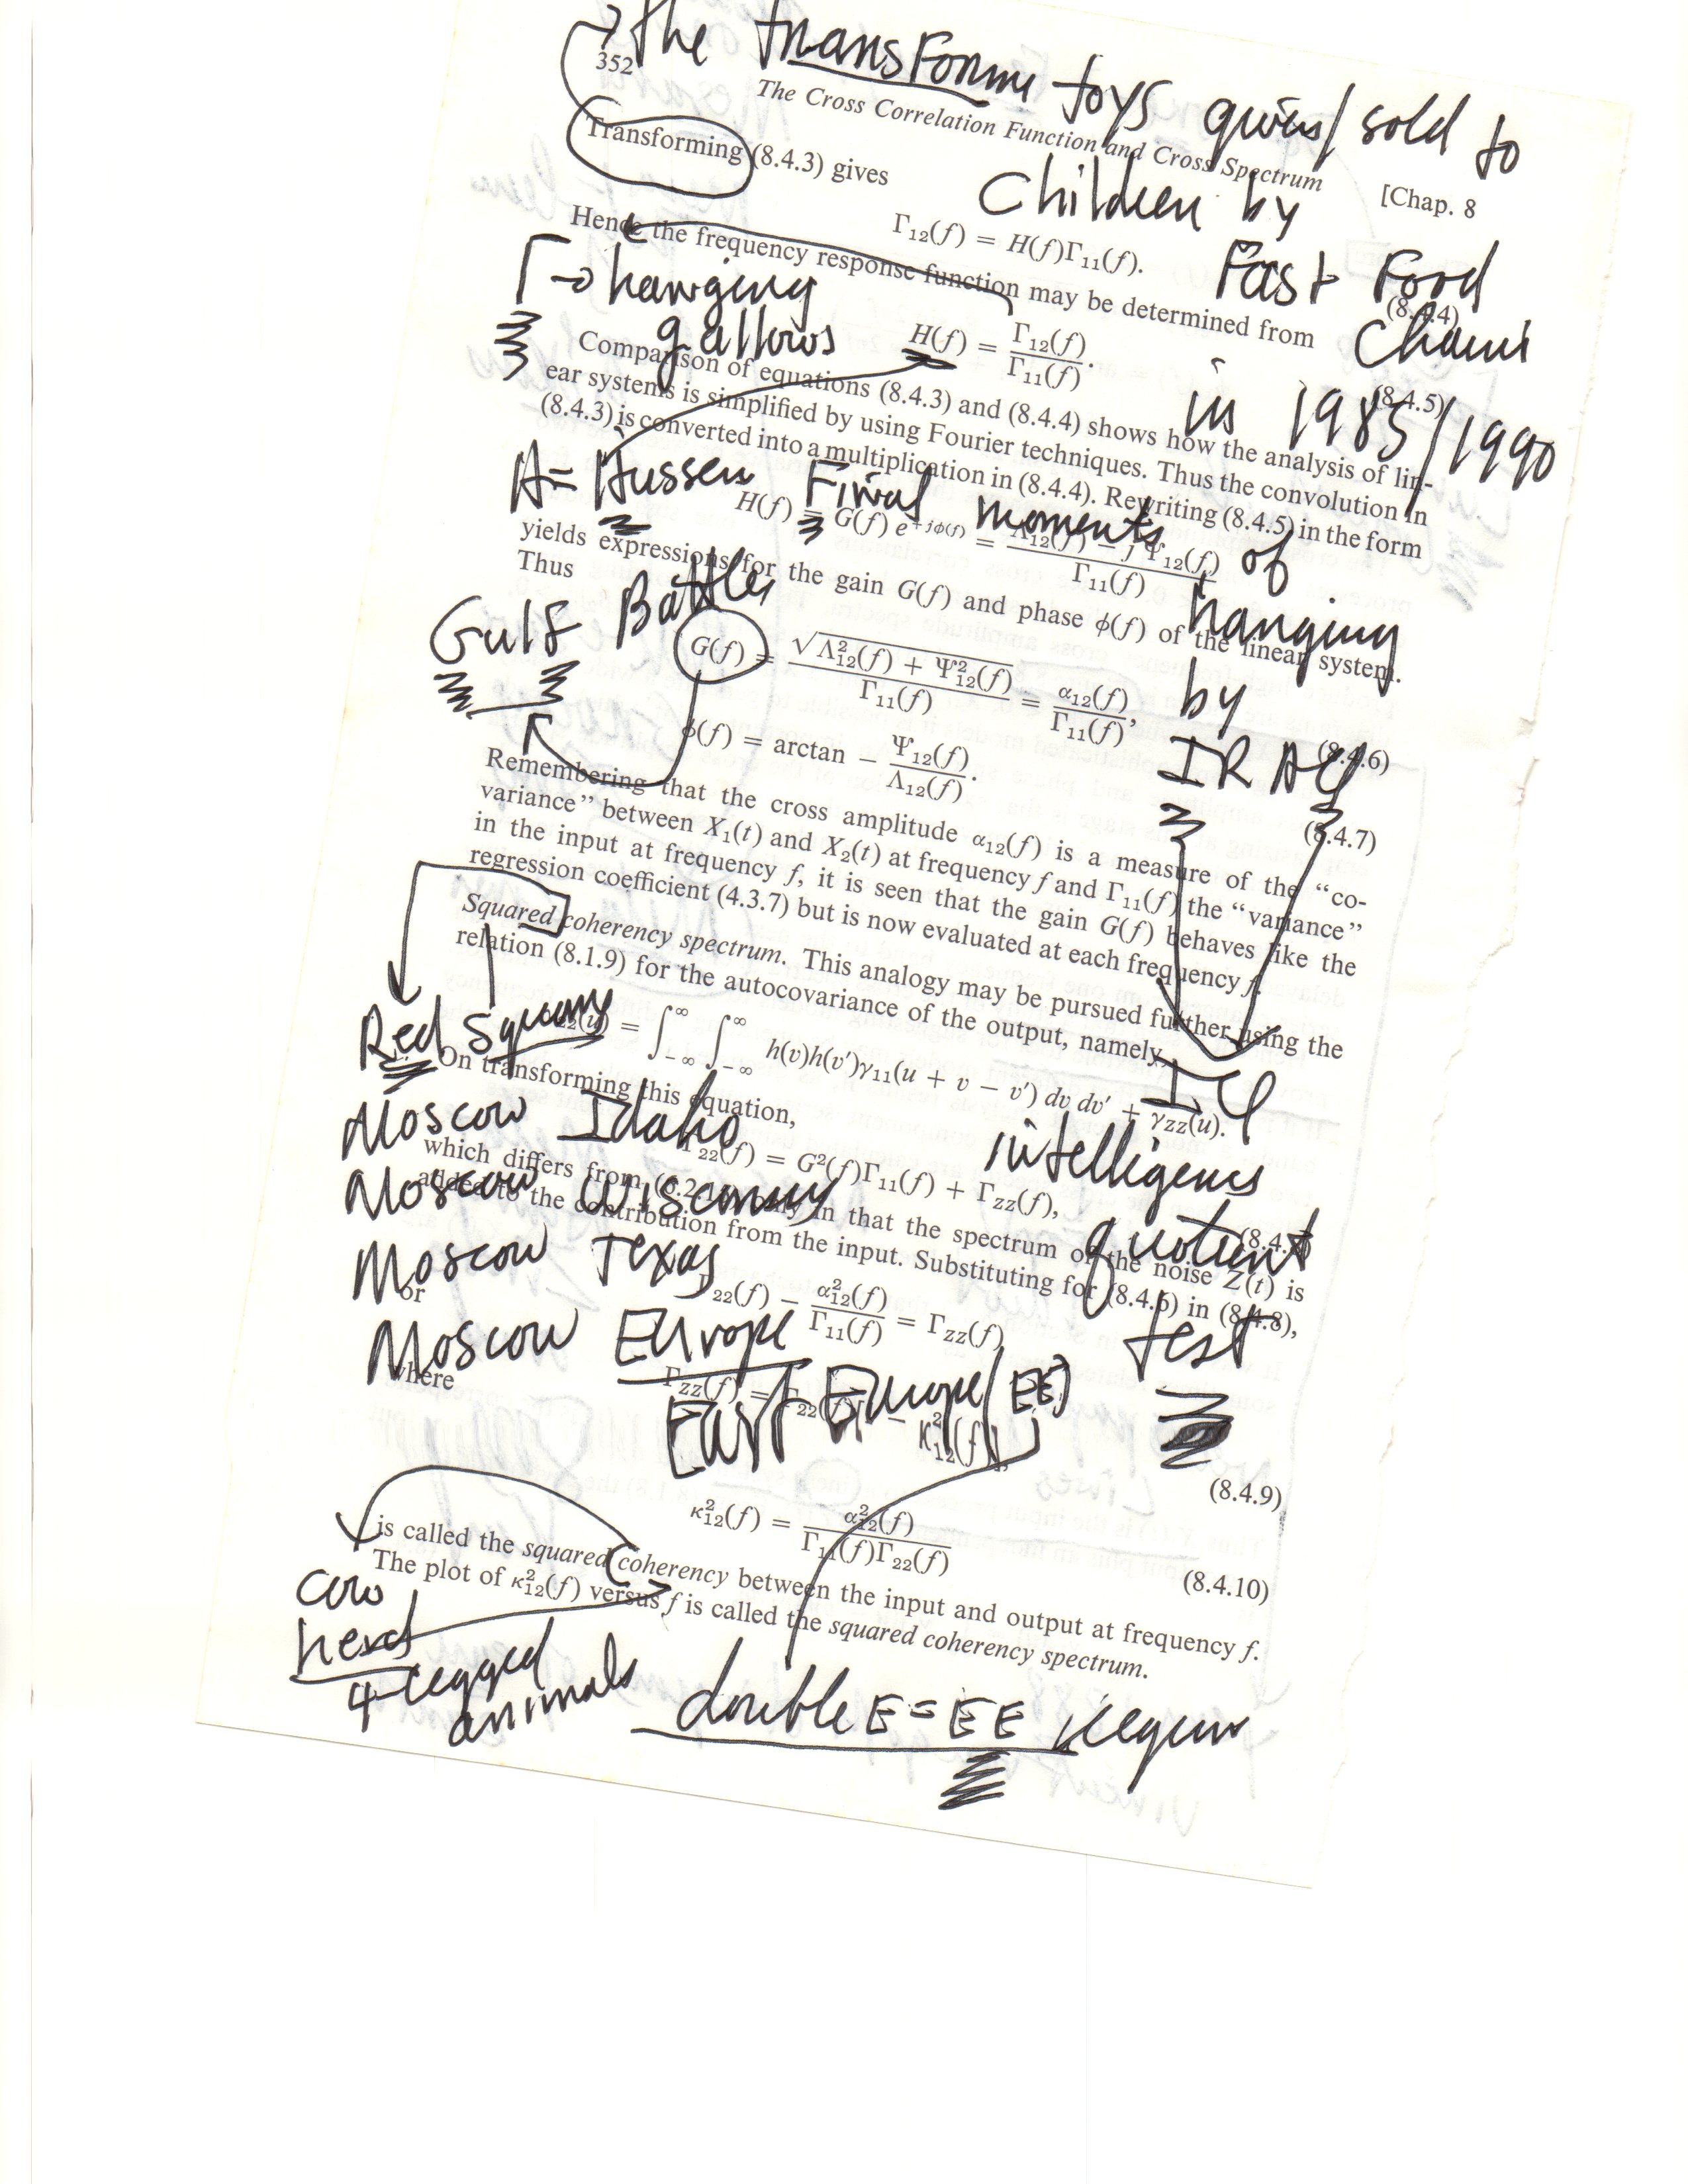 the transForme toys given/sold to
352
The Cross Correlation Function and Cross Spectrum
[Chap. 8
Transforming (8.4.3) gives
Children by
Γ₁₂(f) = H(f)Γ₁₁(f).
Fast Food
(8.4.4)
Chains
Hence the frequency response function may be determined from
Γ → hanging
gallows
H(f) = Γ₁₂(f) / Γ₁₁(f).
(8.4.5)
in 1985/1990
Comparison of equations (8.4.3) and (8.4.4) shows how the analysis of lin-
ear systems is simplified by using Fourier techniques. Thus the convolution in
(8.4.3) is converted into a multiplication in (8.4.4). Rewriting (8.4.5) in the form
H= Hussen Final moments of
hanging
by
IRAQ
H(f) = G(f) e^{+jφ(f)} = Λ₁₂(f) − j Ψ₁₂(f) / Γ₁₁(f)
yields expressions for the gain G(f) and phase φ(f) of the linear system.
Thus
Gulf Battle
G(f) = √Λ²₁₂(f) + Ψ²₁₂(f) / Γ₁₁(f) = α₁₂(f) / Γ₁₁(f),
(8.4.6)
φ(f) = arctan − Ψ₁₂(f) / Λ₁₂(f).
(8.4.7)
Remembering that the cross amplitude α₁₂(f) is a measure of the “co-
variance” between X₁(t) and X₂(t) at frequency f and Γ₁₁(f) the “variance”
in the input at frequency f, it is seen that the gain G(f) behaves like the
regression coefficient (4.3.7) but is now evaluated at each frequency f.
Squared coherency spectrum. This analogy may be pursued further using the
relation (8.1.9) for the autocovariance of the output, namely,
Red Square
(u) = ∫^∞_{−∞} ∫^∞_{−∞} h(v)h(v′)γ₁₁(u + v − v′) dv dv′ + γ_{ZZ}(u).
IQ
intelligence
quotient
test
On transforming this equation,
Moscow Idaho
Γ₂₂(f) = G²(f)Γ₁₁(f) + Γ_{ZZ}(f),
which differs from only in that the spectrum of the noise Z(t) is
Moscow
added to the contribution from the input. Substituting for (8.4.6) in (8.4.8),
Moscow Texas
or
Γ₂₂(f) − α²₁₂(f) / Γ₁₁(f) = Γ_{ZZ}(f)
Moscow Europe
where
Γ_{ZZ}(f) = Γ₂₂(f) − κ²₁₂(f)
East Europe (EE)
(8.4.9)
κ²₁₂(f) = α²₁₂(f) / Γ₁₁(f)Γ₂₂(f)
(8.4.10)
is called the squared coherency between the input and output at frequency f.
The plot of κ²₁₂(f) versus f is called the squared coherency spectrum.
cow
herd
4 legged
animals
double E = EE